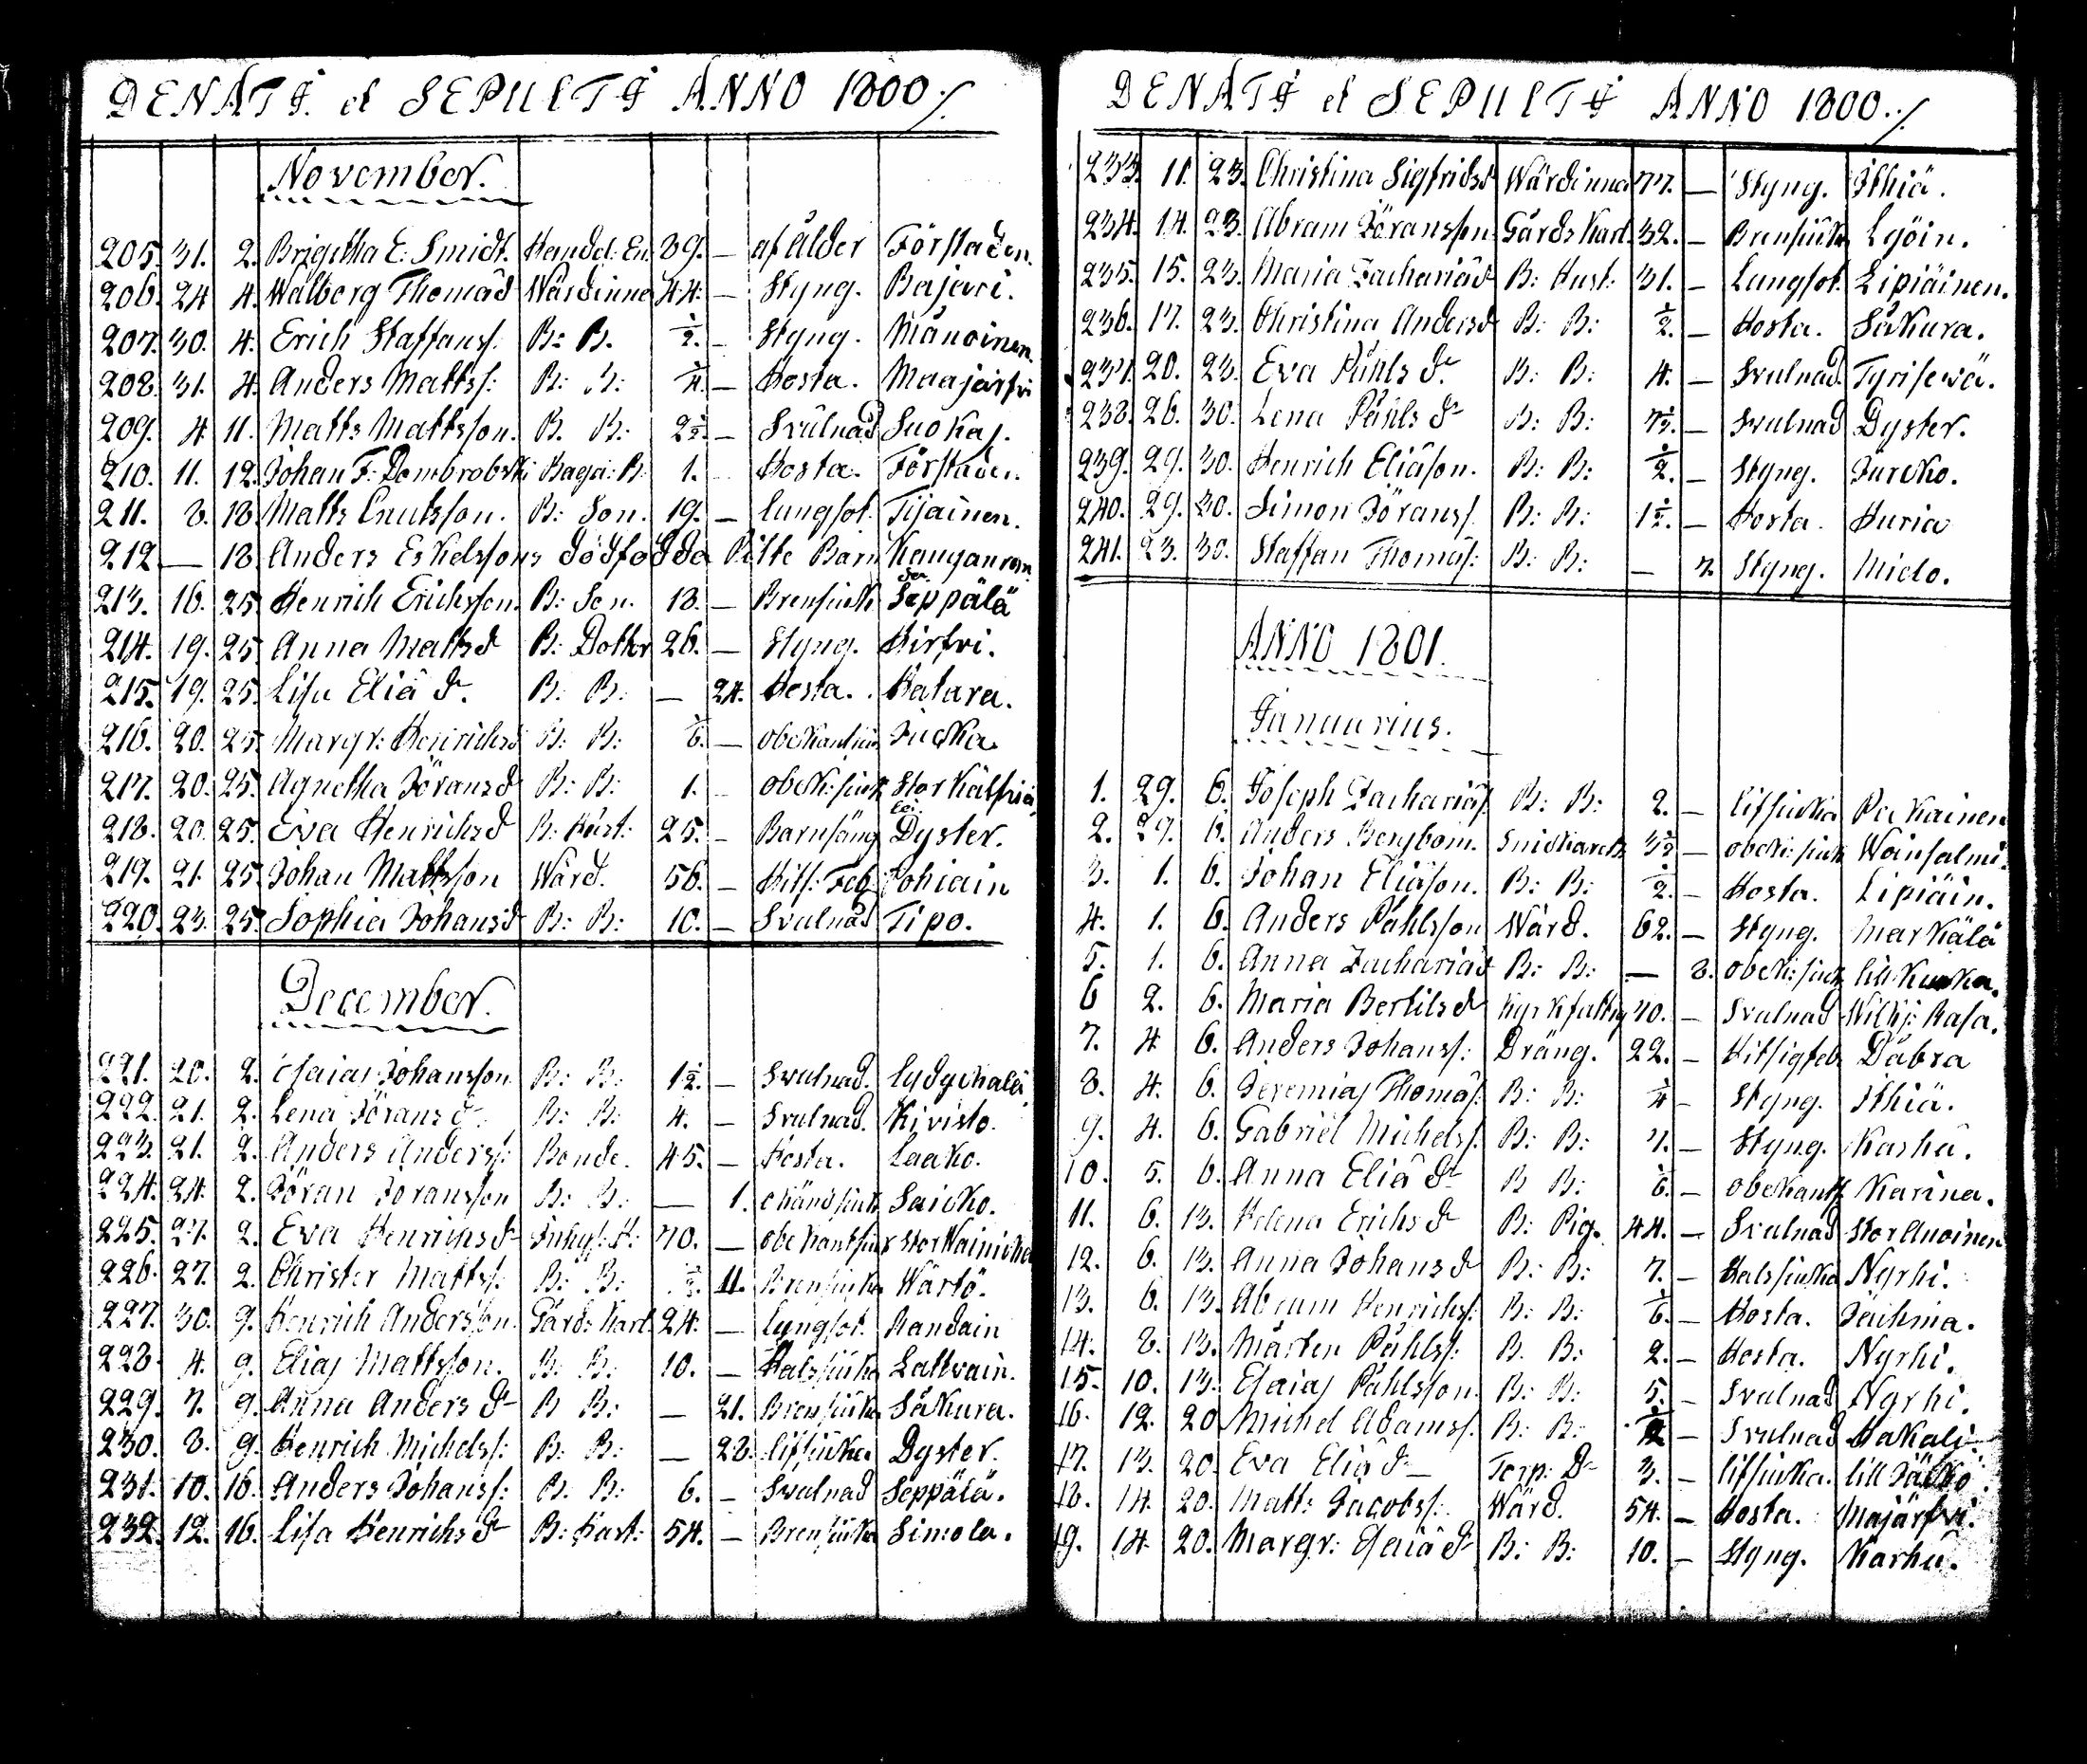 DENATI et SEPULTI ANNO 1800./.
November.
205. 31. 2. Brigitha E: Smidt. Handel: En: 89. — af ålder Förstaden.
206. 24 4. Walborg Thomäd Wärdinna 44. — Styng. Bajari.
207. 30. 4. Erich Staffans/: B: B. 1/2. — Styng. Mänoinen.
208. 31. 4. Anders Matts/: B: B: 1/4. — Hosta. Maajärfvi
209. 4 11. Matts Mattsson. B. B: 2 1/2. — Svulnad Suokas.
210. 11. 12. Johan F: Dombrobski Baga: B: 1. — Hosta. Förstaden.
211. 8. 18 Matts Cnutsson. B: Son. 19. — lungsot. Tijainen.
212 — 18 Anders Eskelssons dödfödda Barn
213. 16. 25 Henrich Erichsson. B: Son. 18. — Brensiuk Seppälä
214. 19. 25 Anna Mattsd B: Dotter 26. — Styng. Hirfvi.
215. 19. 25. Lisa Eliä dr. B: B: — 24. Hosta. Hatara.
216. 20. 25 Margr: Henrichsd B: B: 1/6. — obekant siuk
217. 20. 25. Agnetha Göransd B: B: 1. obek: siuk
218. 20. 25. Eva Henrichsd B: Hust: 25. — Barnsäng Dyster.
219. 21. 25 Johan Mattsson Wärd. 56. — Hits: Feb: Pohiain
220. 23. 25. Sophia Johansd B: B: 10. — Svulnad Tipo.
December.
221. 20. 2. Esaias Johansson B: B: 1 1/2. — Svulnad.
222. 21. 2. Lena Görans dr B: B: 4. — Svulnad. Kivisto.
223. 21. 2. Anders Anders/: Bonde. 45. — Hosta. Laako.
224. 24. 2. Göran Göransson B: B: — 1. okänd siuk Saicko.
225. 27. 2. Eva Henrichs dr Inhys: H: 70. — obekant siuk
226. 27. 2. Christer Matts/: B: B: 11. Brensiuka Wärtö.
227. 30. 9. Henrich Andersson. Gårds Karl 24. — lungsot. Randain
228. 4. 9. Elias Mattsson. B: B: 10. — Halssiuka Lattvain.
229. 7. 9. Anna Anders dr B B: — 21. Brensiuka Säkura.
230. 8. 9. Henrich Michels/: B: B: — 28. lifsiuka Dyster.
231. 10. 16. Anders Johans/: B: B: 6. — Svulnad Seppälä.
232. 12. 16. Lisa Henrichs dr B: Hust: 54. — Brensiuka Simola.
DENATI et SEPULTI ANNO 1800./.
233. 11. 23. Christina Sigfridsd Wärdinna 77. — Styng. Ithiä.
234. 14. 23. Abram Göransson Gårds Karl. 32. — Brensiuka Lyöin.
235. 15. 23. Maria Zachariäd B: Hust: 31. — Lungsot. Lipiäinen.
236. 17. 23. Christina Andersd B: B: 1/2. — Hosta. Säkura.
237. 20. 23. Eva Påhls dr. B: B: 4. — Svulnad. Tyrisevä.
238. 26. 30. Lena Påhls dr B: B: 7 1/2. — Svulnad Dyster.
239. 29. 30. Henrich Eliäson. B: B: 1/2. — Styng. Jurcko.
240. 29. 30. Simon Görans/. B: B: 1 1/2. — Hosta. Huria
241. 23. 30. Staffan Thomäs/: B: B: — 7. Styng. Mielo.
ANNO 1801.
Januarius.
1. 29. 6. Joseph Zachariäs/. B: B: 2. — lifsiuka Pakainen
2. 29. 6. Anders Bergbom. 3 1/2 — obek: siuk
3. 1. 6. Johan Eliäson. B: B: 1/2. — Hosta. Lipiäin.
4. 1. 6. Anders Påhlsson Wärd. 62. — Styng. Markälä
5. 1. 6. Anna Zachariäd B: B: — 8. obek: siuk
6 2. 6. Maria Bertilsd Kyrkfattig 70. — Svulnad
7. 4 6. Anders Johans/: Dräng. 22. — Hitsigfeb Däbra
8. 4. 6. Jeremias Thomäs/. B: B: 1/4 — Styng. Ithiä.
9. 4. 6. Gabriel Michels/. B: B: 7. — Styng.
10. 5. 6. Anna Eliä dr B B: 1/6. — obekant/. Karina.
11. 6. 13. Helena Erichs dr B: Pig. 44. — Svulnad Stor Anoinen
12. 6. 13. Anna Johans dr B: B: 7. — Halssiuka Nyrhi.
13. 6. 13. Abram Henrichs/. B: B: 1/6. — Hosta.
14. 8. 13. Mårten Påhls/: B. B: 2. — Hosta. Nyrhi.
15. 10. 13. Esaias Påhlsson. B: B: 5. — Svulnad Nyrhi.
16. 12. 20 Michel Adams/. B: B: — Svulnad Hakali
17. 13. 20. Eva Eliä dr Torp: Dr 3. — lifsiuka.
18. 14 20. Matts Jacobs/: Wärd. 54. — Hosta. Majärfvi.
19. 14 20. Margr: Esaiä dr B: B: 10. — Styng. Karhu.